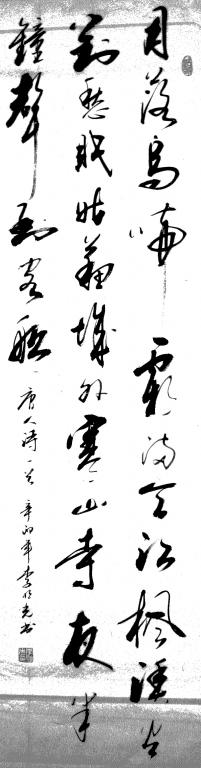 月落烏啼霜滿天江楓漁火
對愁眠姑蘇城外寒山寺夜半
鐘聲到客船 唐人詩 辛卯年李光書